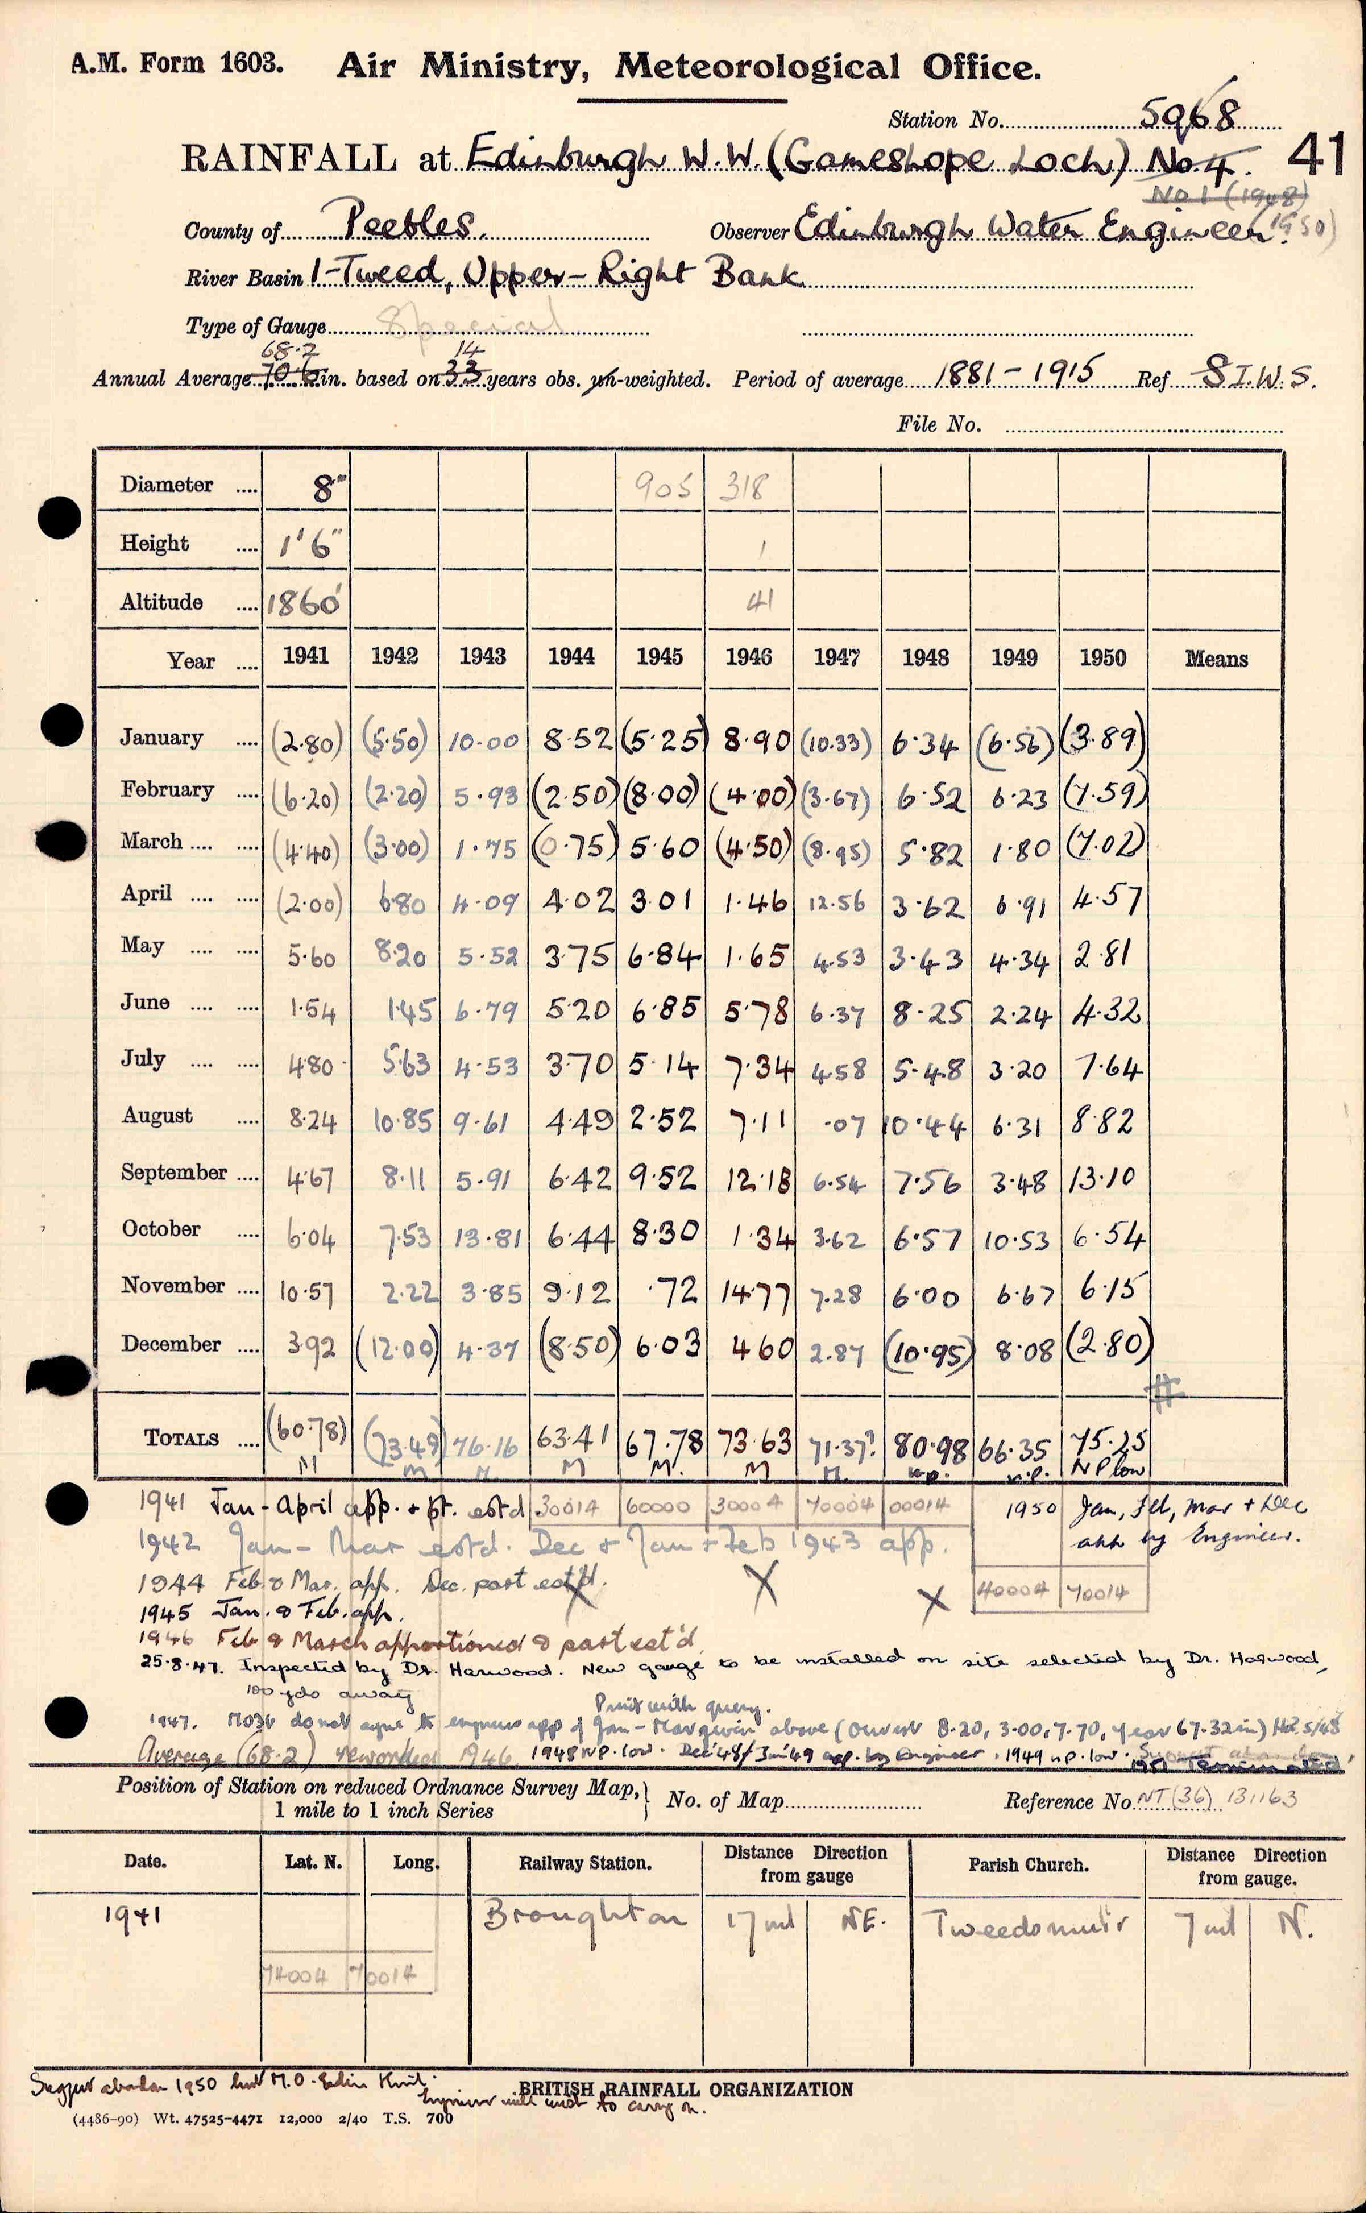 A.M. Form 1603. Air Ministry, Meteorological Office.
Station No. 5968
RAINFALL at Edinburgh W.W. (Gameshope Loch) No. 4. 41
No 1 (1948)
County of Peebles. Observer Edinburgh Water Engineer. (1950)
River Basin 1-Tweed, Upper - Right Bank
Type of Gauge Special
68.2 14
Annual Average 70.6 in. based on 33 years obs. un-weighted. Period of average 1881 - 1915 Ref SI.W.S.
File No.
Diameter .... 8" 905 318
Height .... 1' 6" 1
Altitude .... 1860' 41
Year .... 1941 1942 1943 1944 1945 1946 1947 1948 1949 1950 Means
January .... (2.80) (5.50) 10.00 8.52 (5.25) 8.90 (10.33) 6.34 (6.56) (3.89)
February .... (6.20) (2.20) 5.93 (2.50) (8.00) (4.00) (3.67) 6.52 6.23 (7.59)
March .... .... (4.40) (3.00) 1.75 (0.75) 5.60 (4.50) (8.95) 5.82 1.80 (7.02)
April .... .... (2.00) 6.80 4.09 4.02 3.01 1.46 12.56 3.62 6.91 4.57
May .... .... 5.60 8.20 5.52 3.75 6.84 1.65 4.53 3.43 4.34 2.81
June .... .... 1.54 1.45 6.79 5.20 6.85 5.78 6.37 8.25 2.24 4.32
July .... .... 4.80 5.63 4.53 3.70 5.14 7.34 4.58 5.48 3.20 7.64
August .... 8.24 10.85 9.61 4.49 2.52 7.11 .07 10.44 6.31 8.82
September .... 4.67 8.11 5.91 6.42 9.52 12.18 6.54 7.56 3.48 13.10
October .... 6.04 7.53 13.81 6.44 8.30 1.34 3.62 6.57 10.53 6.54
November .... 10.57 2.22 3.85 9.12 .72 14.77 7.28 6.00 6.67 6.15
December .... 3.92 (12.00) 4.37 (8.50) 6.03 4.60 2.87 (10.95) 8.08 (2.80)
#
TOTALS .... (60.78) (73.49) 76.16 63.41 67.78 73.63 71.37? 80.98 66.35 75.25
M M M. M M. M M. n.p. n.p. N P low
1941 Jan - April app. + pt. estd 30014 60000 30004 70004 00014 1950 Jan, Feb, Mar + Dec
1942 Jan - Mar estd. Dec & Jan + Feb 1943 app. app by Engineer.
1944 Feb & Mar. app. Dec. part est'd. X X X 40004 70014
1945 Jan. & Feb. app.
1946 Feb & March apportioned & part est'd
25.8.47. Inspected by Dr. Harwood. New gauge to be installed on site selected by Dr. Harwood,
100 yds away Print with query.
1947. MO3b do not agree to engineers app of Jan - Mar given above (our est 8.20, 3.00, 7.70, year 67.32 in) 5/48
Average (68.2) reworked 1946 1948 n.p. low. Dec '48/Jan '49 app. by Engineer. 1949 n.p. low. 1951 Terminated
Position of Station on reduced Ordnance Survey Map,
1 mile to 1 inch Series No. of Map Reference No NT (36) 131163
Date. Lat. N. Long. Railway Station. Distance Direction from gauge Parish Church. Distance Direction from gauge.
1941 Broughton 17 ml NE. Tweedsmuir 7 ml N.
74004 70014
1950 M.O. Edin
Engineer will wish to carry on.
BRITISH RAINFALL ORGANIZATION
(4486-90) Wt. 47525-4471 12,000 2/40 T.S. 700